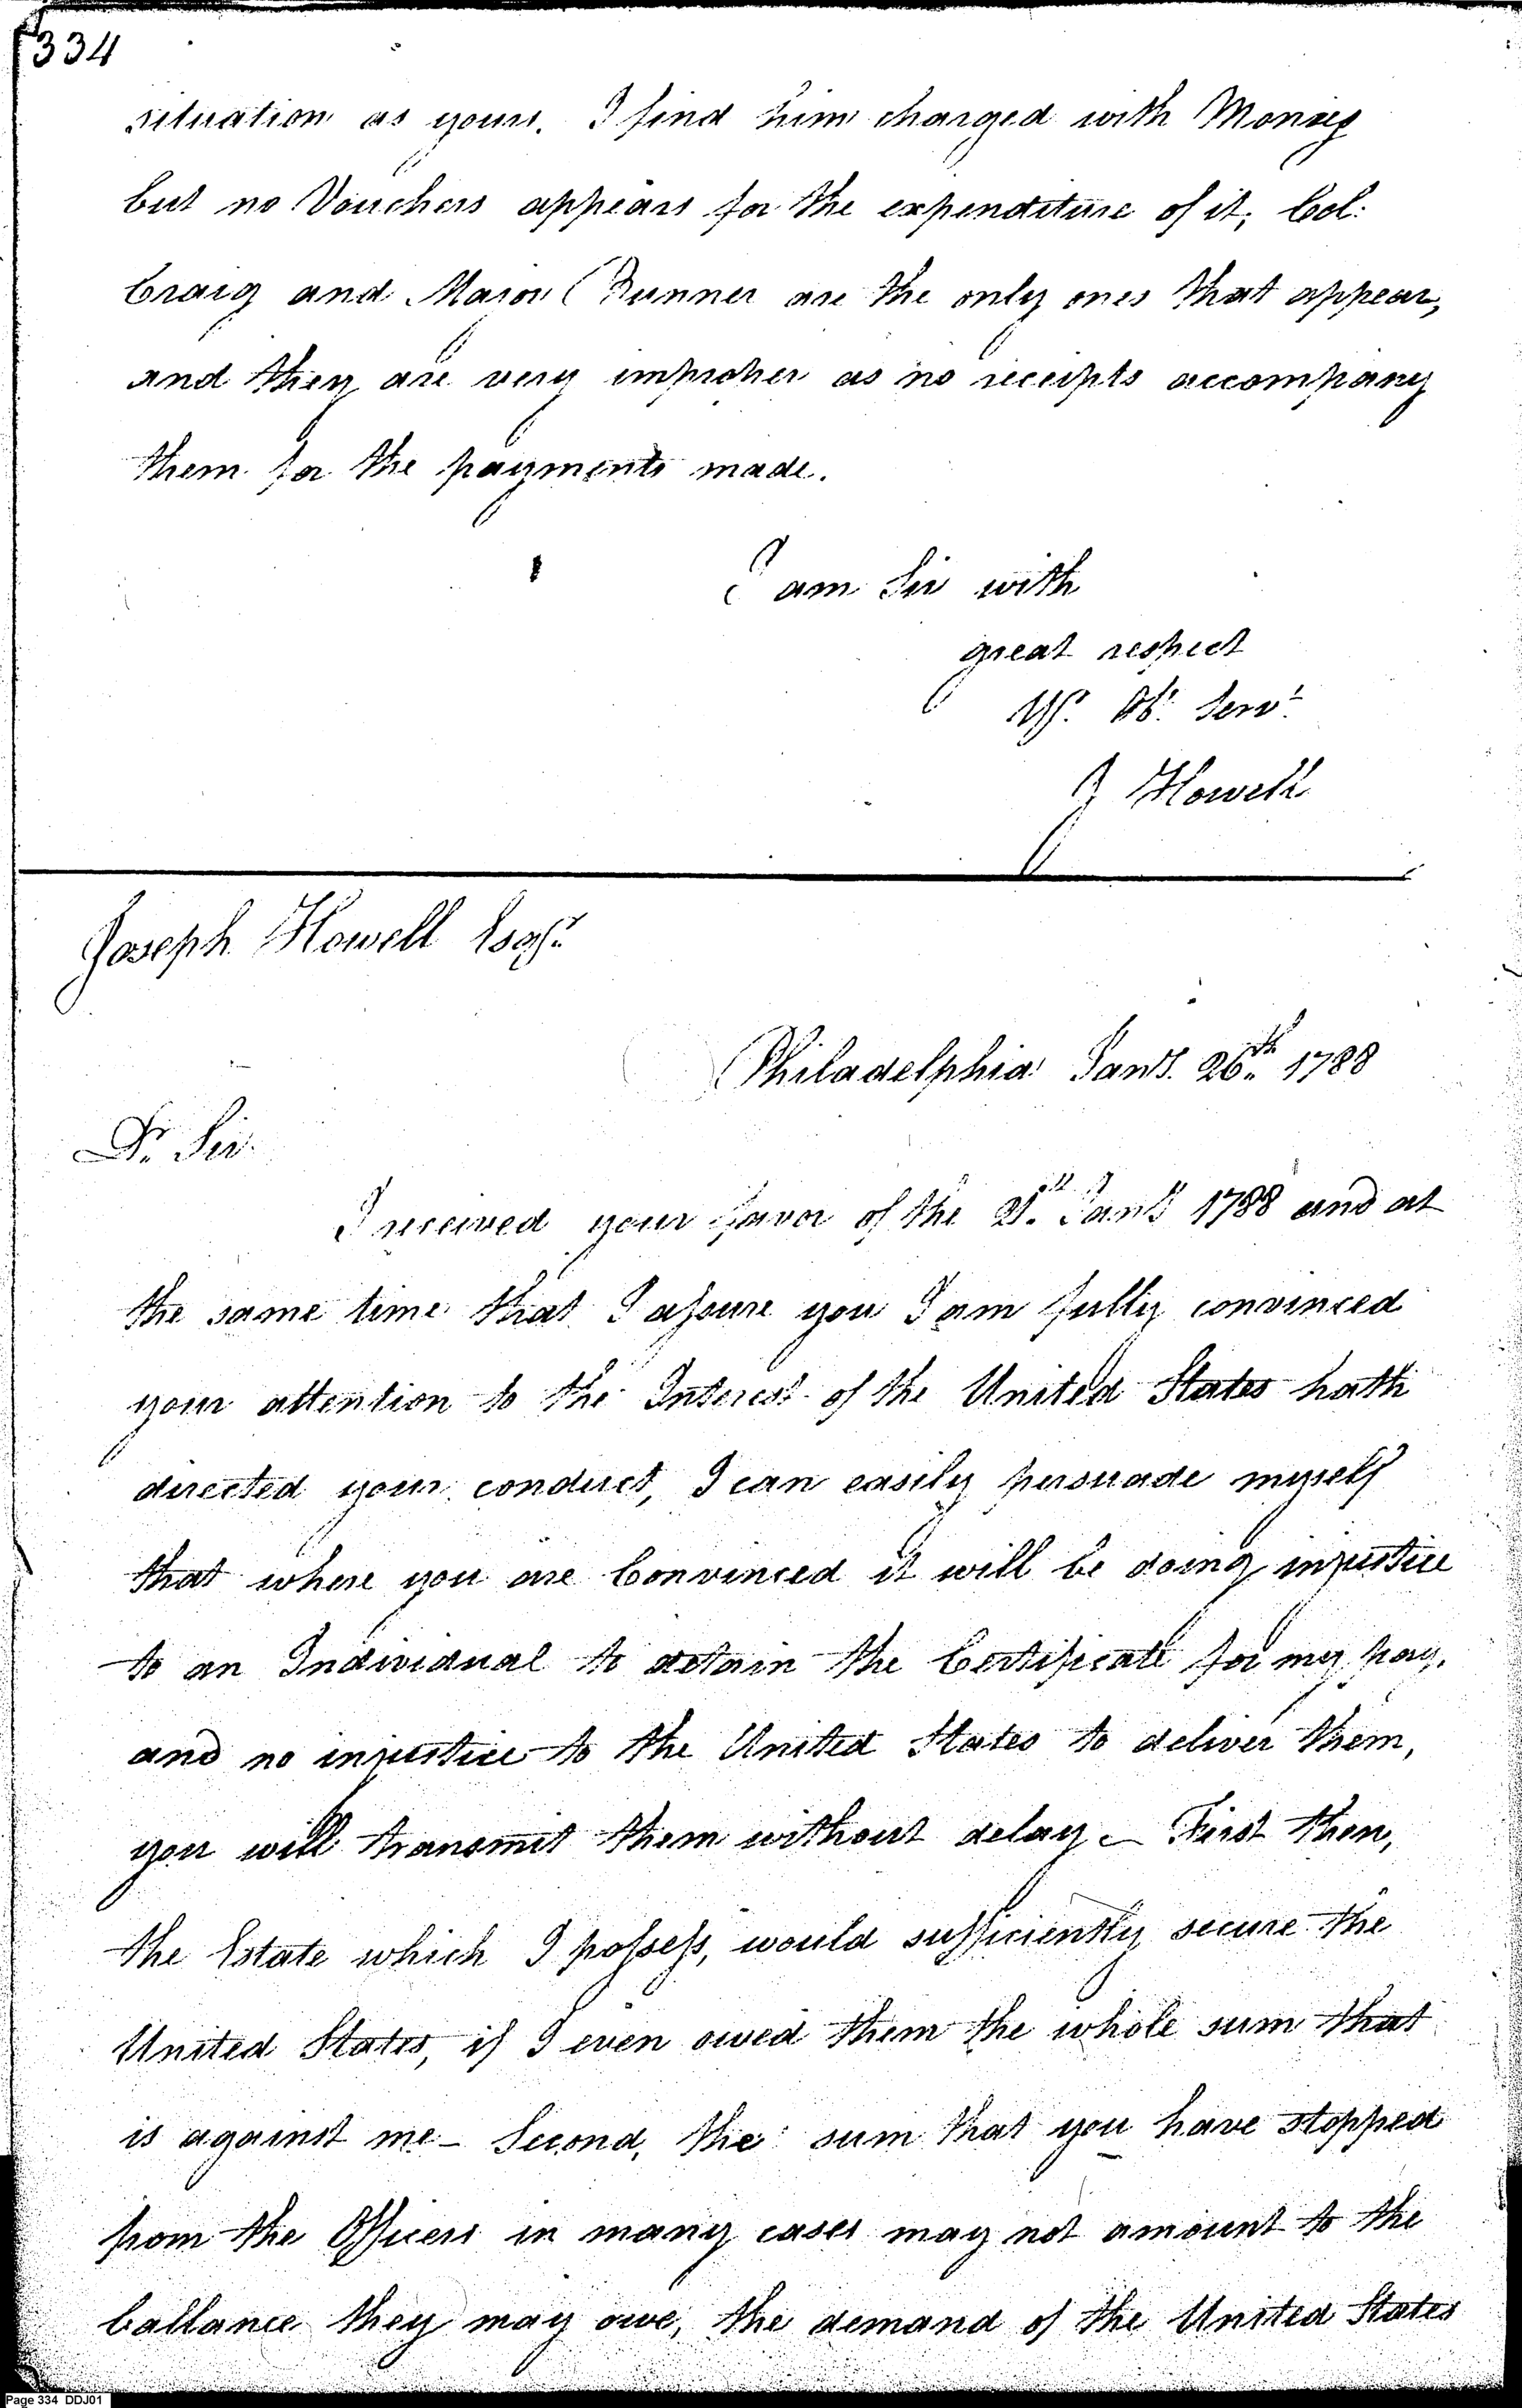 334
situation as yours. I find him charged with Monies
but no Vouchers appears for the expenditure of it; Col:
Craig and Major Runner are the only ones that appear,
and they are very improper as no receipts accompany
them for the payments made.
I am Sir with
great respect
Yr. Ob. Servt
J Howell
Joseph Howell Esqr.
Philadelphia Jany. 26th 1788
Dr. Sir
I received your favor of the Jany 1788 and at
the same time that I assure you I am fully convinced
your attention to the Interest of the United States hath
directed your conduct, I can easily persuade myself
that where you are Convinced it will be doing injustice
to an Individual to detain the Certificate for my pay,
and no injustice to the United States to deliver them,
you will transmit them without delay – First then,
the Estate which I possess, would sufficiently secure the
United States, if I even owed them the whole sum that
is against me – Second, the sum that you have stopped
from the Officers in many cases may not amount to the
ballance they may owe, the demand of the United States
Page 334 DDJ01